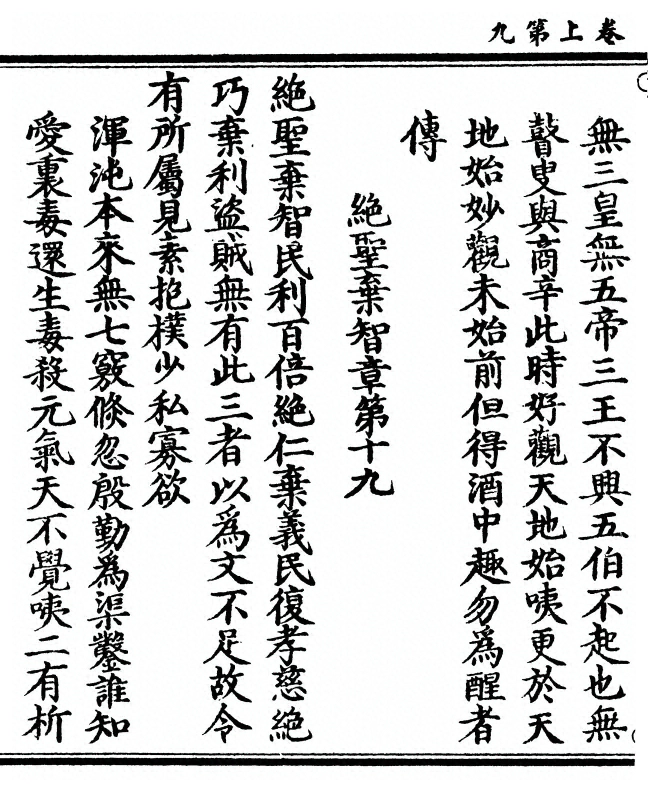 卷上第九
無三皇無五帝三王不興五伯不起也無
瞽叟與商辛此時好觀天地始咦更於天
地始妙觀未始前但得酒中趣勿為醒者
傳
絕聖棄智章第十九
絕聖棄智民利百倍絕仁棄義民復孝慈絕
巧棄利盜賊無有此三者以為文不足故令
有所屬見素抱樸少私寡欲
渾沌本來無七竅倏忽殷勤為渠鑿誰知
愛裏毒還生毒殺元氣天不覺咦二有析